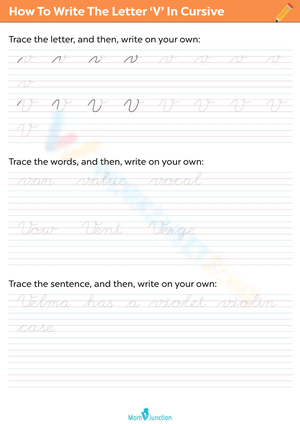 How To Write The Letter ‘V’ In Cursive
Trace the letter, and then, write on your own:
v v v v v v v v
v
V V V V V V V V
V
Trace the words, and then, write on your own:
van value vocal
Vow Vent Verge
Trace the sentence, and then, write on your own:
Velma has a violet violin
case
Mom Junction